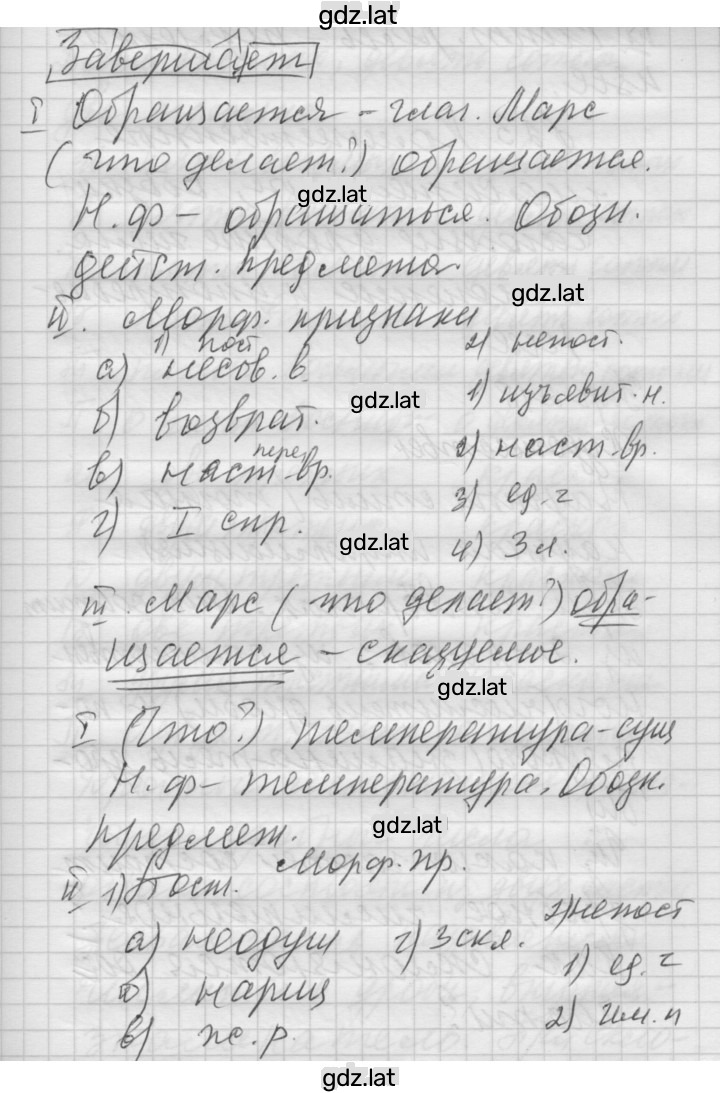 gdz.lat
Завершает
I Обращается – глаг. Марс
(что делает?) обращается.
gdz.lat
Н.ф – обращаться. Обозн.
дейст. предмета.
gdz.lat
II. Морф. признаки
1) пост 2) непост.
а) несов. в. 1) изъявит. н.
gdz.lat
б) возврат.
перех
в) наст. вр. 2) наст. вр.
г) I спр. 3) ед. ч
gdz.lat
4) 3 л.
III. Марс (что делает?) обра-
щается – сказуемое.
gdz.lat
I (Что?) температура – сущ
Н.ф – температура. Обозн.
предмет.
gdz.lat
Морф. пр.
II 1) Пост. 2) непост
а) неодуш г) 3 скл. 1) ед. ч
б) нариц 2) им. п
в) ж. р.
gdz.lat